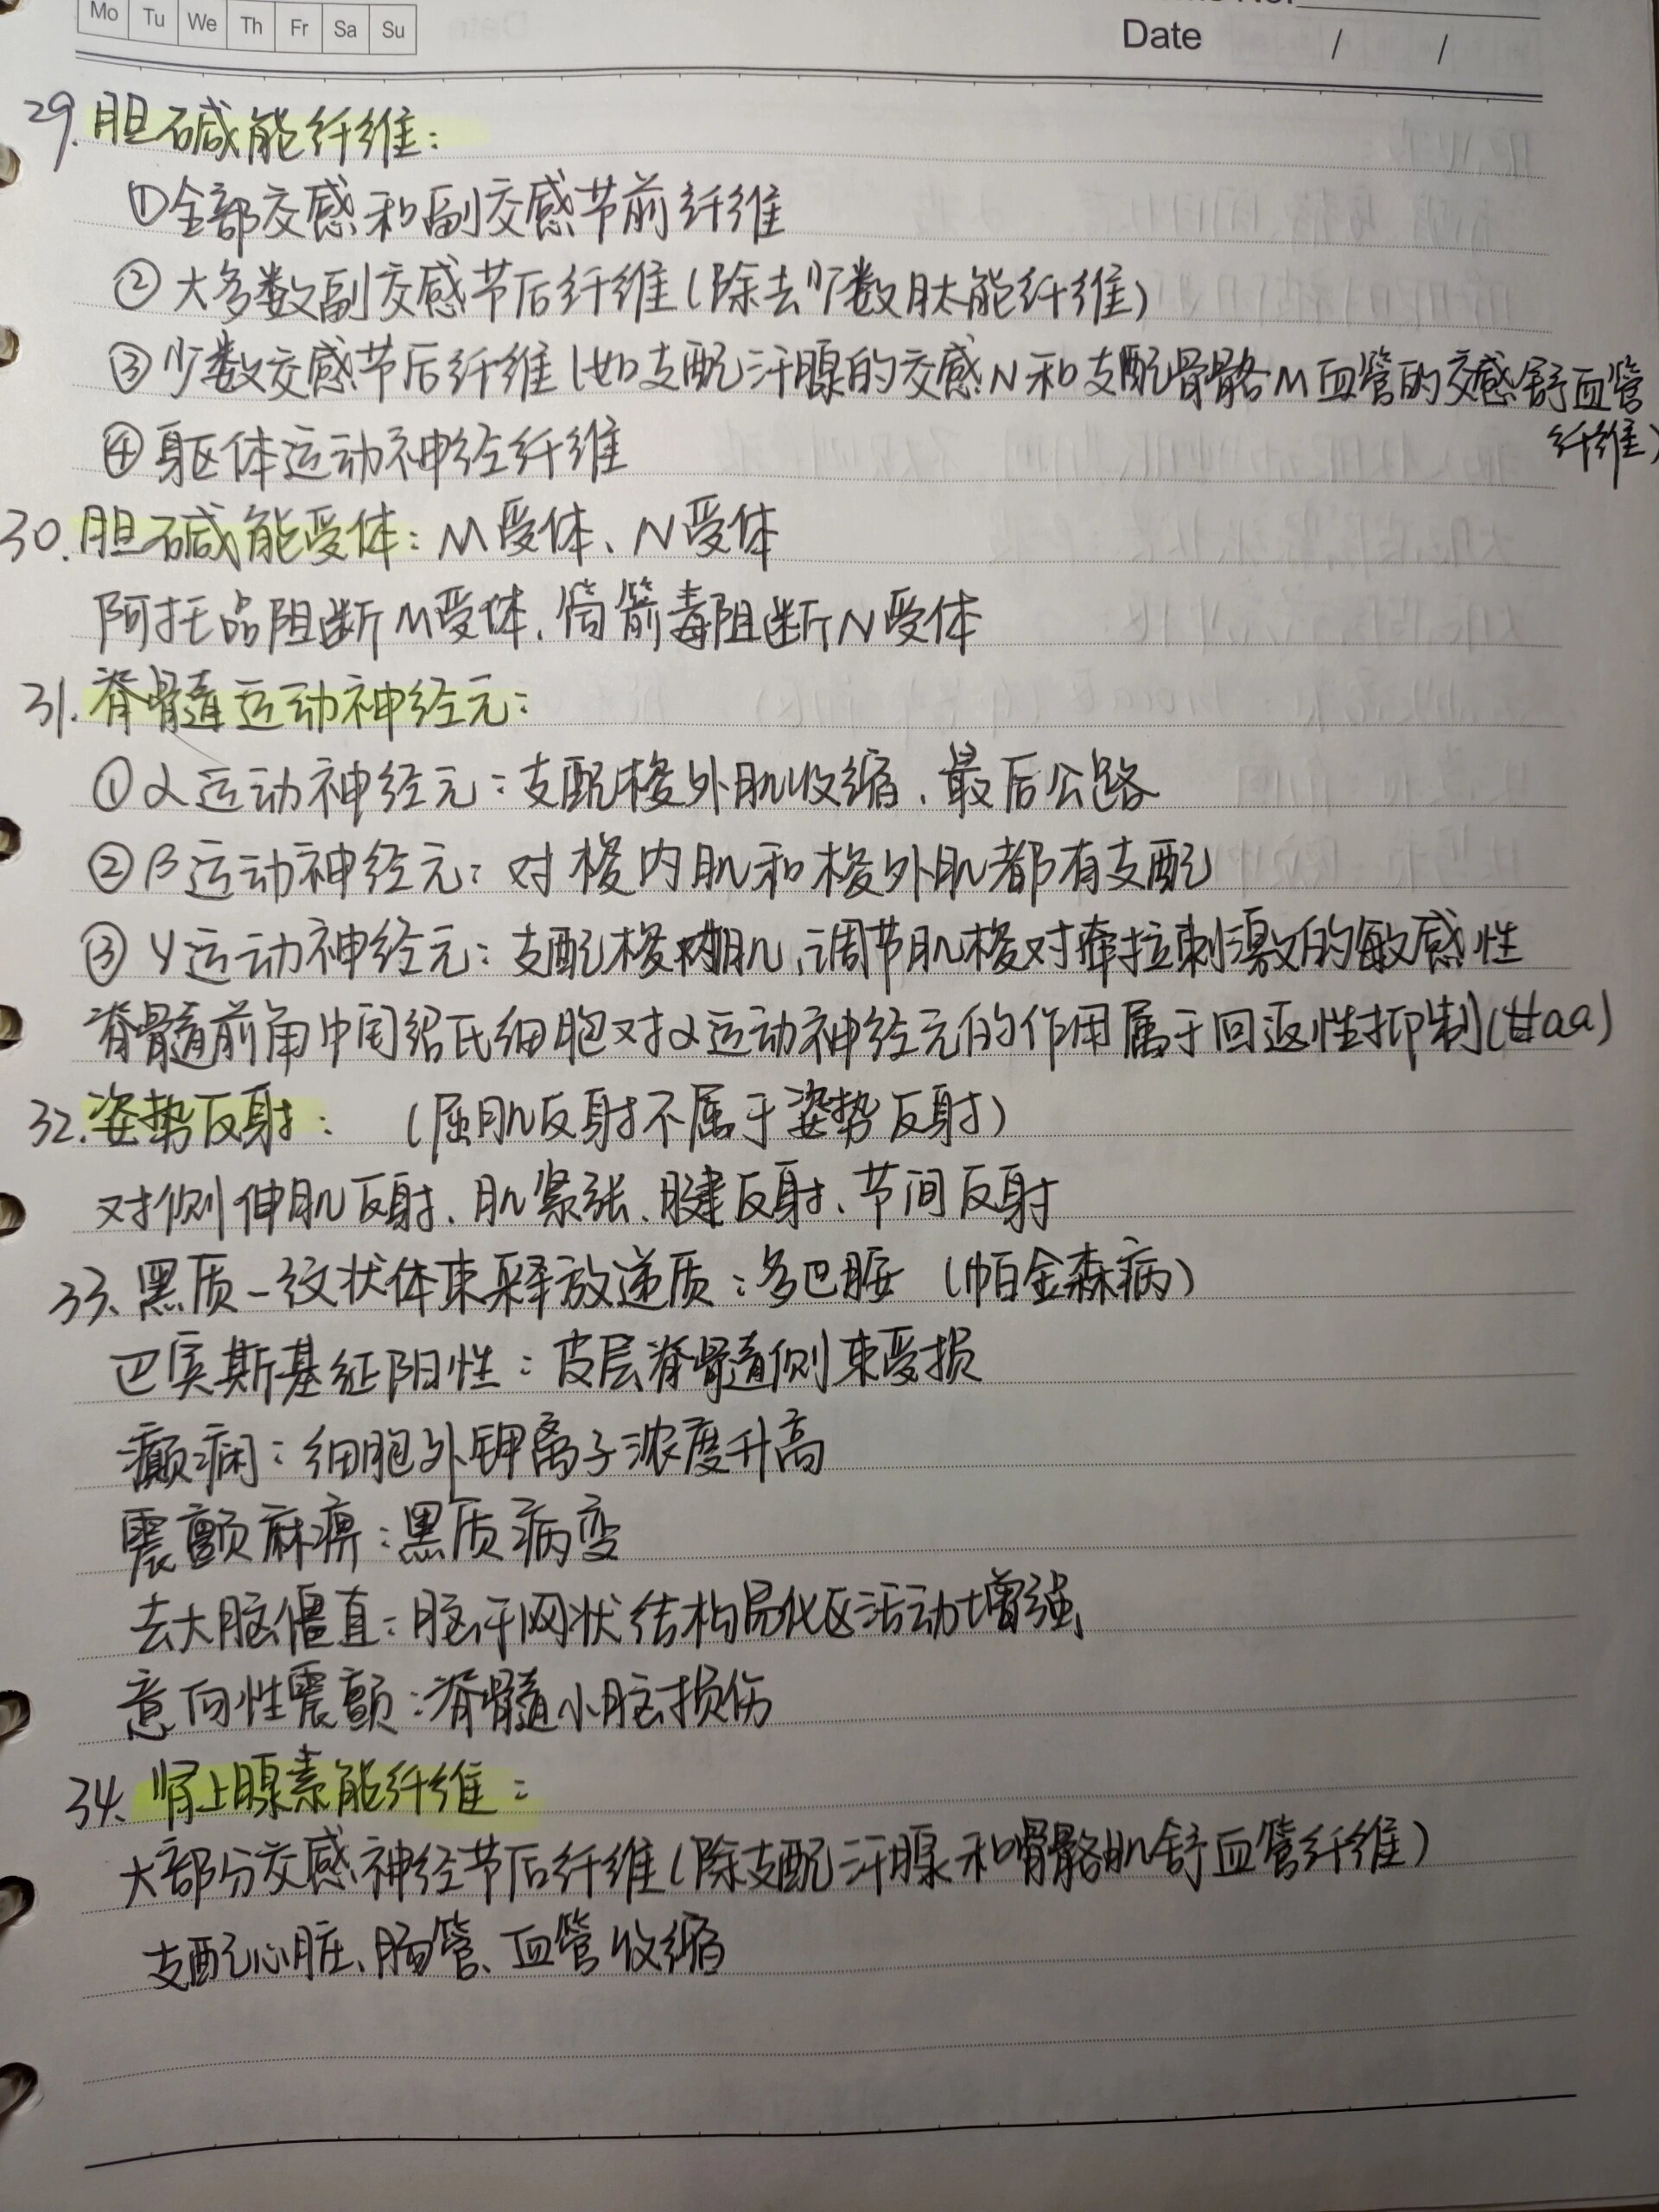 Mo Tu We Th Fr Sa Su
Date / /
29. 胆碱能纤维:
①全部交感和副交感节前纤维
②大多数副交感节后纤维(除去少数肽能纤维)
③少数交感节后纤维(如支配汗腺的交感N和支配骨骼M血管的交感舒血管
纤维)
④躯体运动神经纤维
30. 胆碱能受体: M受体、N受体
阿托品阻断M受体,筒箭毒阻断N受体
31. 脊髓运动神经元:
①α运动神经元:支配梭外肌收缩、最后公路
②β运动神经元:对梭内肌和梭外肌都有支配
③γ运动神经元:支配梭内肌,调节肌梭对牵拉刺激的敏感性
脊髓前角中闰绍氏细胞对α运动神经元的作用属于回返性抑制(甘aa)
32. 姿势反射: (屈肌反射不属于姿势反射)
对侧伸肌反射、肌紧张、腱反射、节间反射
33、黑质-纹状体束释放递质:多巴胺 (帕金森病)
巴宾斯基征阳性:皮层脊髓侧束受损
癫痫:细胞外钾离子浓度升高
震颤麻痹:黑质病变
去大脑僵直:脑干网状结构易化区活动增强
意向性震颤:脊髓小脑损伤
34、肾上腺素能纤维:
大部分交感神经节后纤维(除支配汗腺和骨骼肌舒血管纤维)
支配心脏、肠管、血管收缩